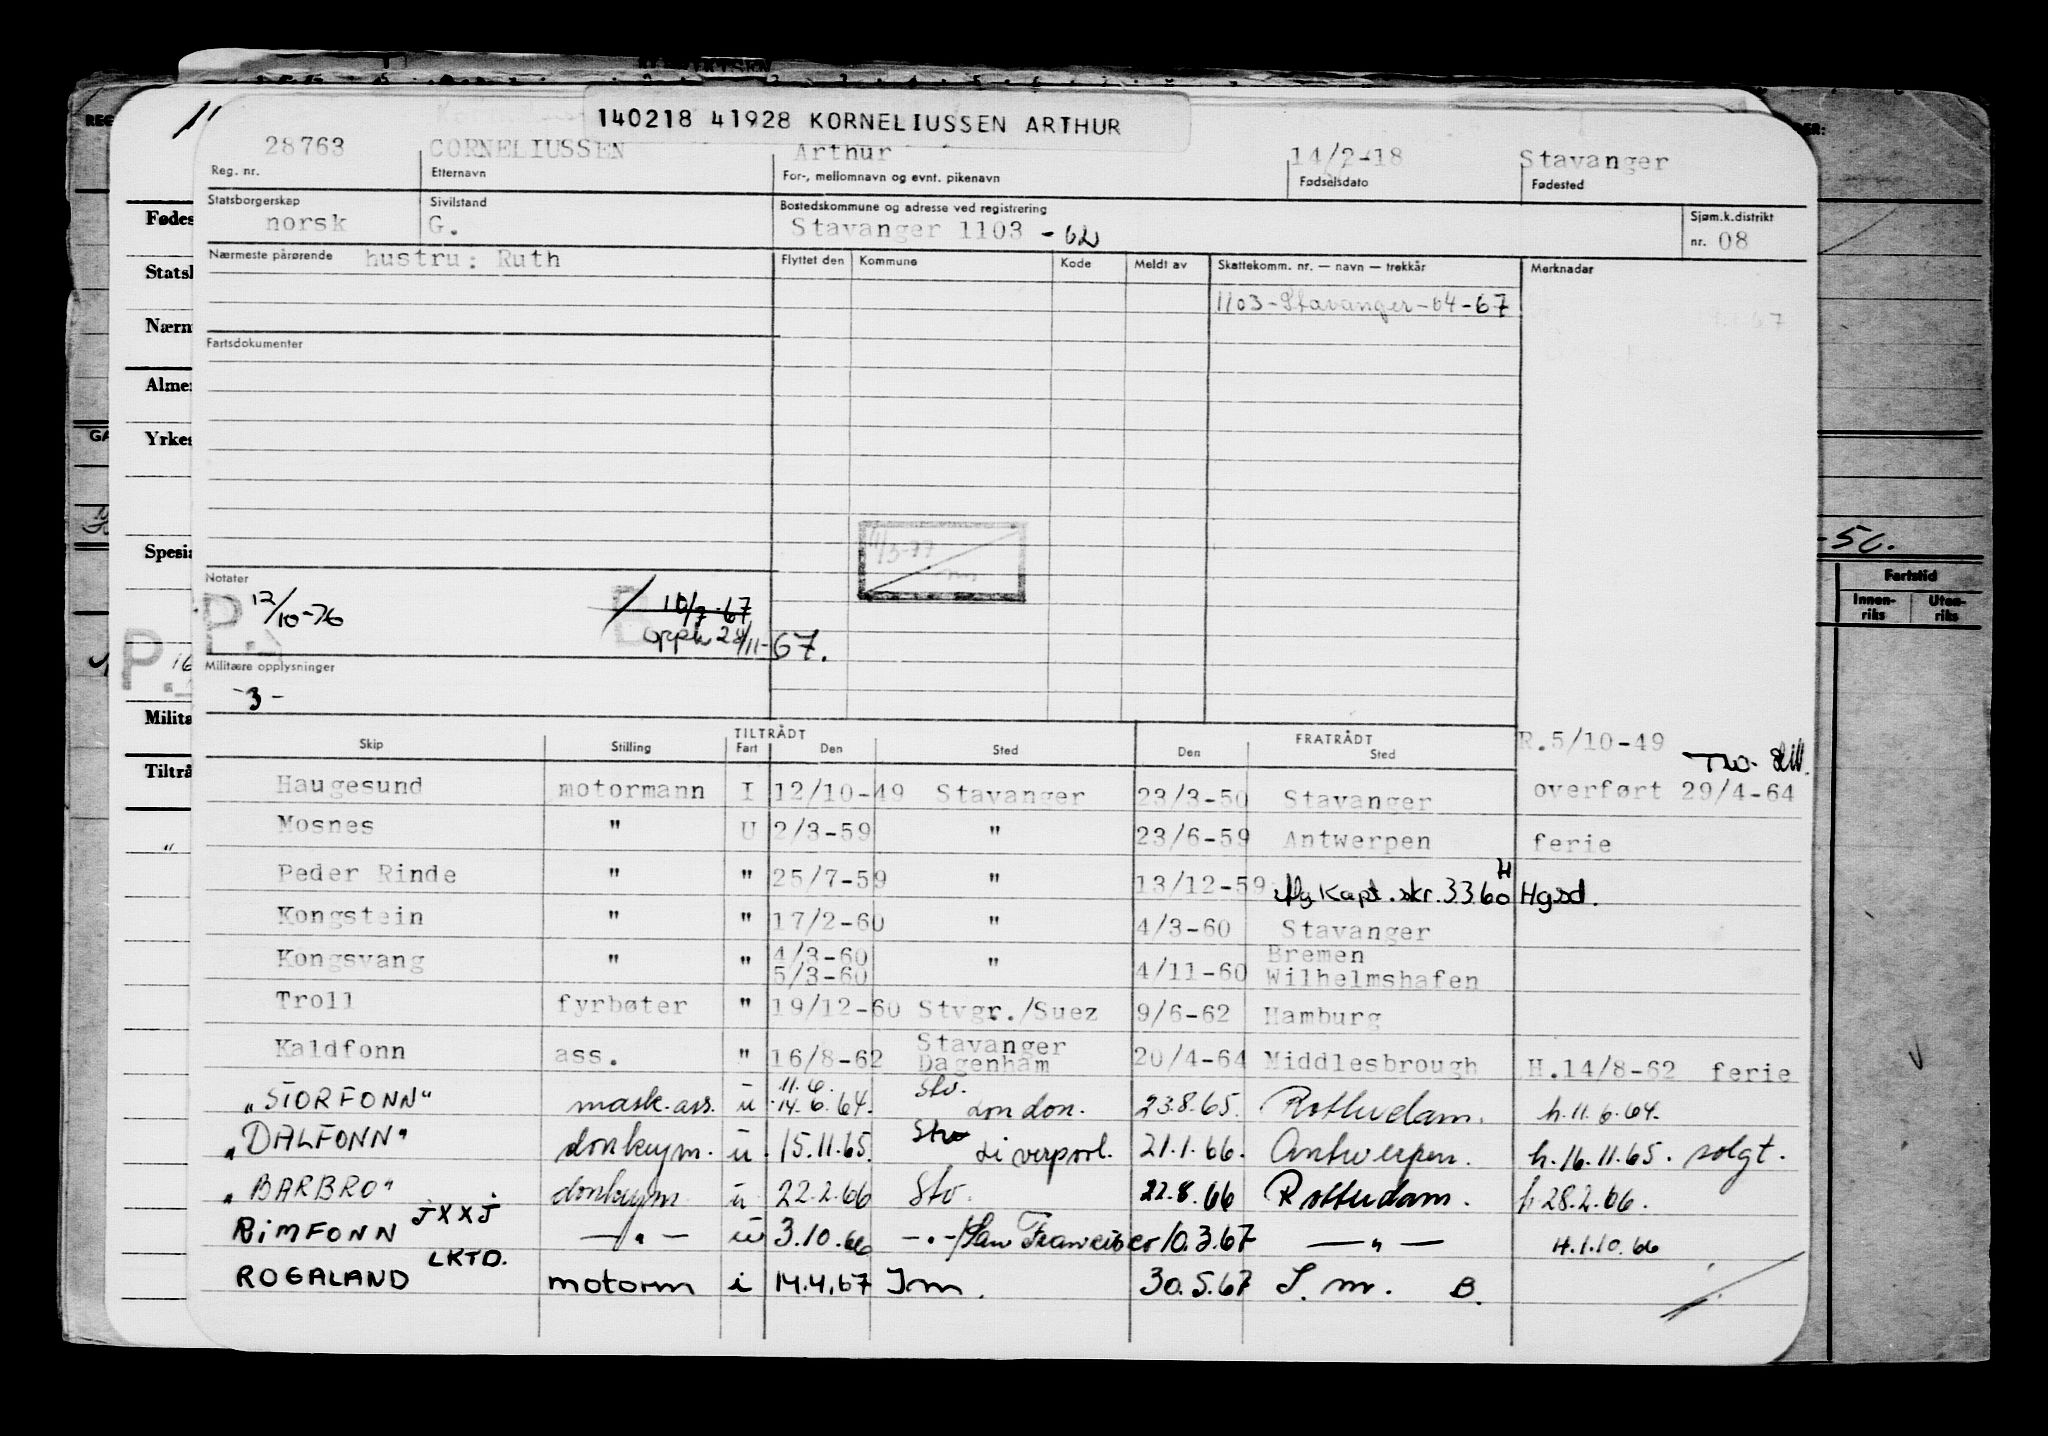 140218 41928 KORNELIUSSEN ARTHUR
28763 CORNELIUSSEN Arthur 14/2-18 Stavanger
Reg. nr. Etternavn For-, mellomnavn og evnt. pikenavn Fødselsdato Fødested
Statsborgerskap Sivilstand Bostedskommune og adresse ved registrering Sjøm.k.distrikt
norsk G. Stavanger 1103 - nr. 08
Nærmeste pårørende hustru: Ruth Flyttet den Kommune Kode Meldt av Skattekomm. nr. — navn — trekkår Merknader
1103-Stavanger-04-67
Fartsdokumenter
11/3-77
Notater
P. 12/10-76 10/7-67
opph 28/11-67.
Militære opplysninger
-3-
TILTRÅDT FRATRÅDT R.5/10-49
Skip Stilling Fart Den Sted Den Sted
Haugesund motormann I 12/10-49 Stavanger 23/3-50 Stavanger overført 29/4-64
Mosnes " U 2/3-59 " 23/6-59 Antwerpen ferie
Peder Rinde " " 25/7-59 " 13/12-59 Kapt. skr. 3360 H Hgsd.
Kongstein " " 17/2-60 " 4/3-60 Stavanger
Kongsvang " " 4/3-60 5/3-60 " 4/11-60 Bremen Wilhelmshafen
Troll fyrbøter " 19/12-60 Stvgr./Suez 9/6-62 Hamburg
Kaldfonn ass. " 16/8-62 Stavanger Dagenham 20/4-64 Middlesbrough H.14/8-62 ferie
"STORFONN" mask.ass. u 11.6. 14.6.64. Stv. London. 23.8.65. Rotterdam. h.11.6.64.
"DALFONN" donkeym. u 15.11.65. Stv Liverpool. 21.1.66. Antwerpen. h.16.11.65. solgt.
"BARBRO" donkeym. u 22.2.66 Stv. 22.8.66 Rotterdam. h 28.2.66.
RIMFONN JXXJ —"— u 3.10.66 -"-/San Francisco 10.3.67 —"— H.1.10.66
ROGALAND LKTD. motorm i 14.4.67 I.m. 30.5.67 I.m. B.
Fødes
Stats
Nærm
Almer
Yrkes
Spesia
P. 16
Milita
Tiltrå
"
-50.
Fartstid
Innen-riks Uten-riks